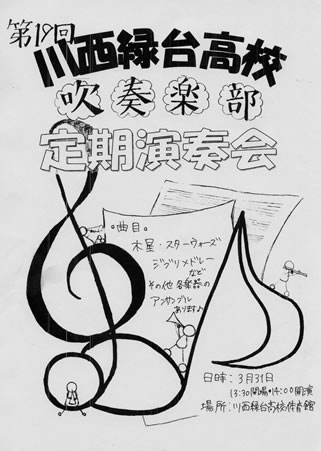 第19回
川西緑台高校
吹奏楽部
定期演奏会
。曲目。
木星・スターウォーズ
ジブリメドレー
など
その他 各楽器の
アンサンブル
あります♪
日時:3月31日
13:30開場・14:00開演
場所:川西緑台高校体育館